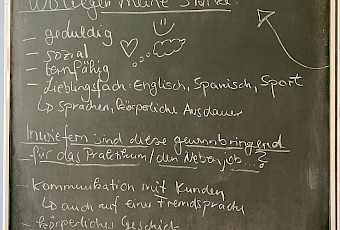 Wo liegen meine Stärken?
– geduldig
– sozial
– lernfähig
– Lieblingsfach: Englisch, Spanisch, Sport
↳ Sprachen, körperliche Ausdauer
Inwiefern sind diese gewinnbringend
– für das Praktikum / den Nebenjob?
– Kommunikation mit Kunden
↳ auch auf einer Fremdsprache
– körperliches Geschick